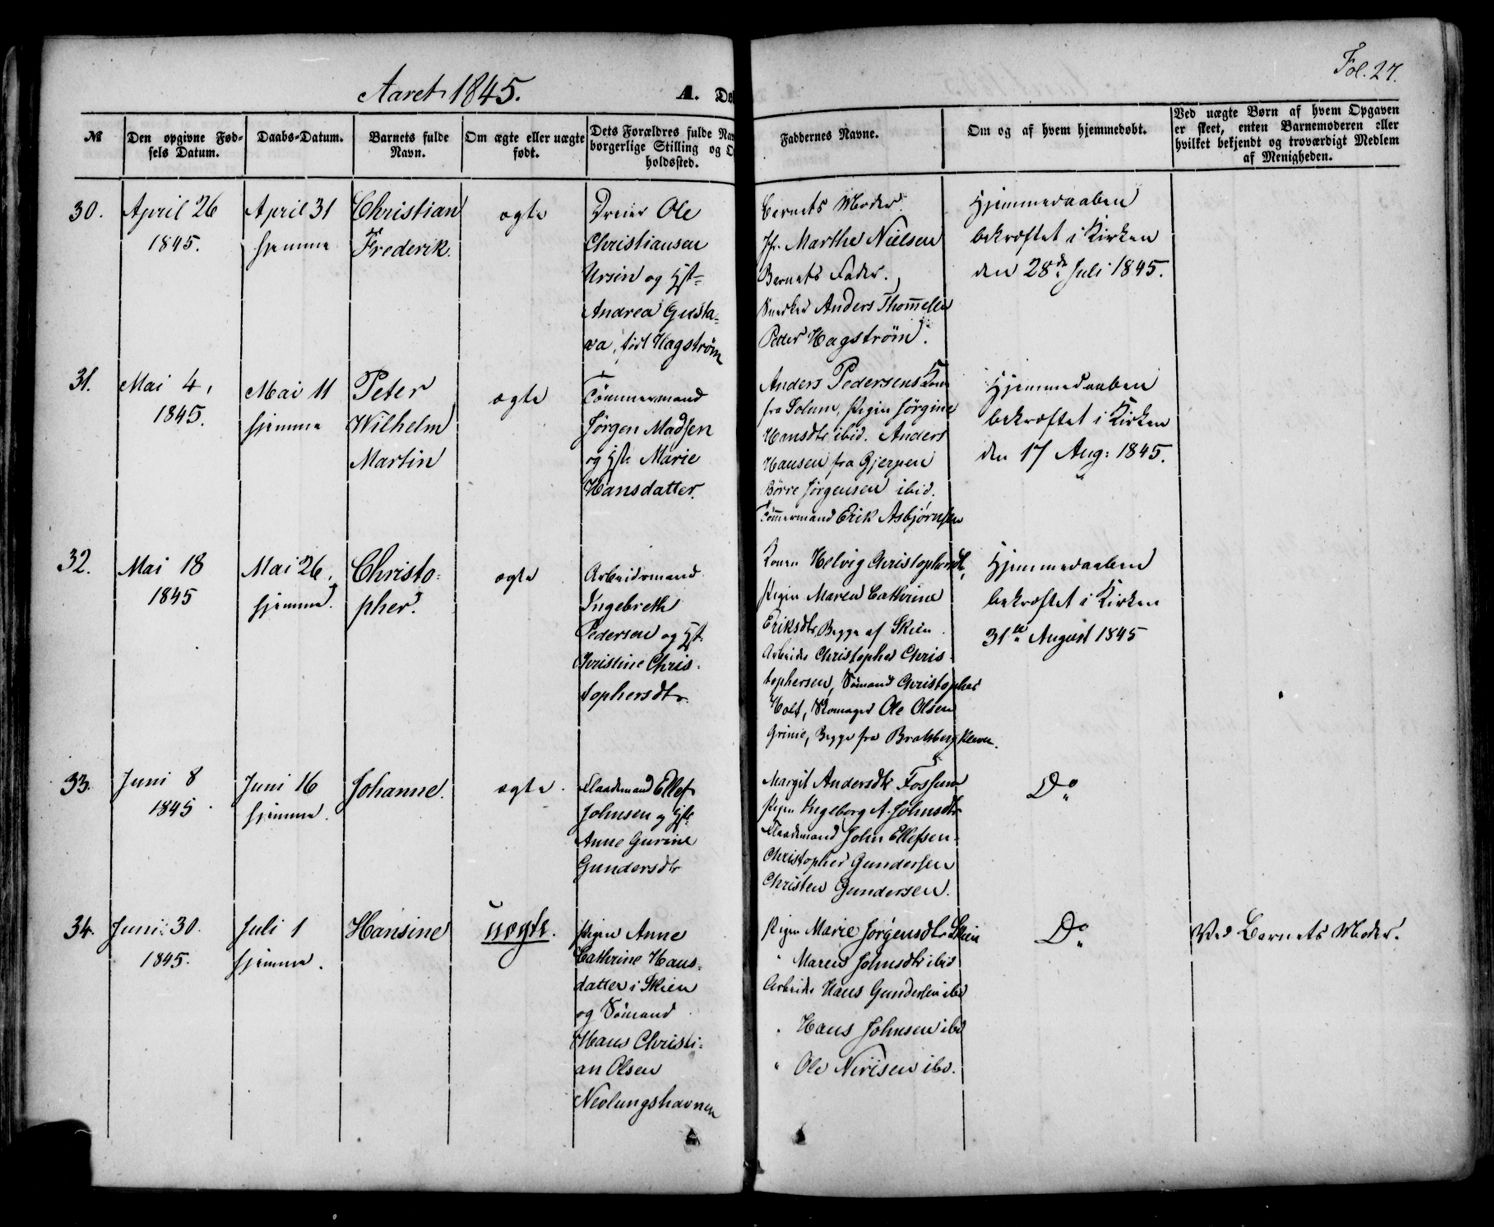 Fol. 27.
Aaret 1845.
A.
№
Den opgivne Fød-
sels Datum.
Daabs-Datum.
Barnets fulde
Navn.
Om ægte eller uægte
født.
Dets Forældres fulde Nav
borgerlige Stilling og O
holdssted.
Faddernes Navne.
Om og af hvem hjemmedøbt.
Ved uægte Børn af hvem Opgaven
er skeet, enten Barnemoderen eller
hvilket bekjendt og troværdigt Medlem
af Menigheden.
30.
April 26
1845.
April 31
hjemme
Christian
Frederik.
ægte
Ole
Christiansen
Ursin og Hst
Andrea Gusta-
va, født Hagstrøm
Barnets Moder.
Jfr. Marthe Nielsen
Barnets Fader.
Snedker Anders Thommesen
Peder Hagstrøm.
Hjemmedaaben
bekræftet i Kirken
den 28de Juli 1845.
31.
Mai 4,
1845.
Mai 11
hjemme
Peter
Wilhelm
Martin
ægte
Tømmermand
Jørgen Madsen
og Hst. Marie
Hansdatter.
Anders Pedersens Kone
fra Solum, Pigen Jørgine
Hansdtr ibid. Anders
Hansen fra Gjerpen
Børre Jørgensen ibid.
Tømmermand Erik Asbjørnsen
Hjemmedaaben
bekræftet i Kirken
den 17 Aug: 1845.
32.
Mai 18
1845
Mai 26,
hjemme
Christo-
pher.
ægte
Arbeidsmand
Ingebreth
Pedersen og Hst.
Kristine Chris-
tophersdtr
Konen Helvig Christophersdtr,
Pigen Maren Cathrine
Eriksdtr Begge af Skien.
Arbeider Christopher Chris-
tophersen, Sømand Christopher
Holt, Skomager Ole Olsen
Grinie, Begge fra Bratsbergkleven.
Hjemmedaaben
bekræftet i Kirken
31te August 1845
33.
Juni 8
1845.
Juni 16
hjemme.
Johanne.
ægte.
Pladsmand Ellef
Johnsen og Hst.
Anne Gurine
Gundersdtr
Margit Andersdtr Fossum
Pigen Ingeborg A. Johnsdtr
Pladsmand John Ellefsen.
Christopher Gundersen
Christen Gundersen.
Do
34.
Juni 30.
1845.
Juli 1
hjemme.
Hansine
uægte.
Pigen Anne
Cathrine Hans-
datter i Skien
og Sømand
Hans Christi-
an Olsen
Nevlungshavnen
Pigen Marie Jørgensdtr Skien
" Maren Johnsdtr ibid
Arbeider Hans Gundersen ibid
" Hans Johnsen ibid
" Ole ibid.
Do
Ved Barnets Moder.